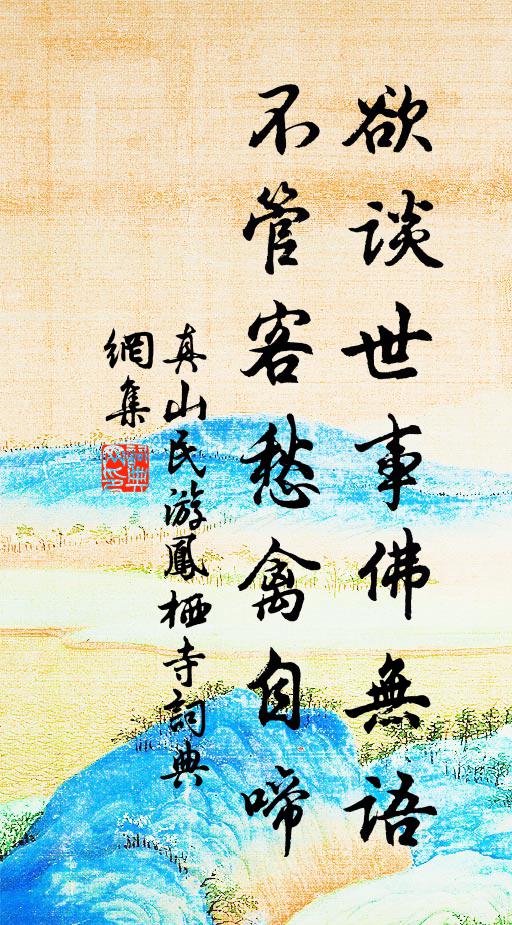 欲談世事佛無語
不管客愁禽自啼
真山民游鳳栖寺詞典
網集